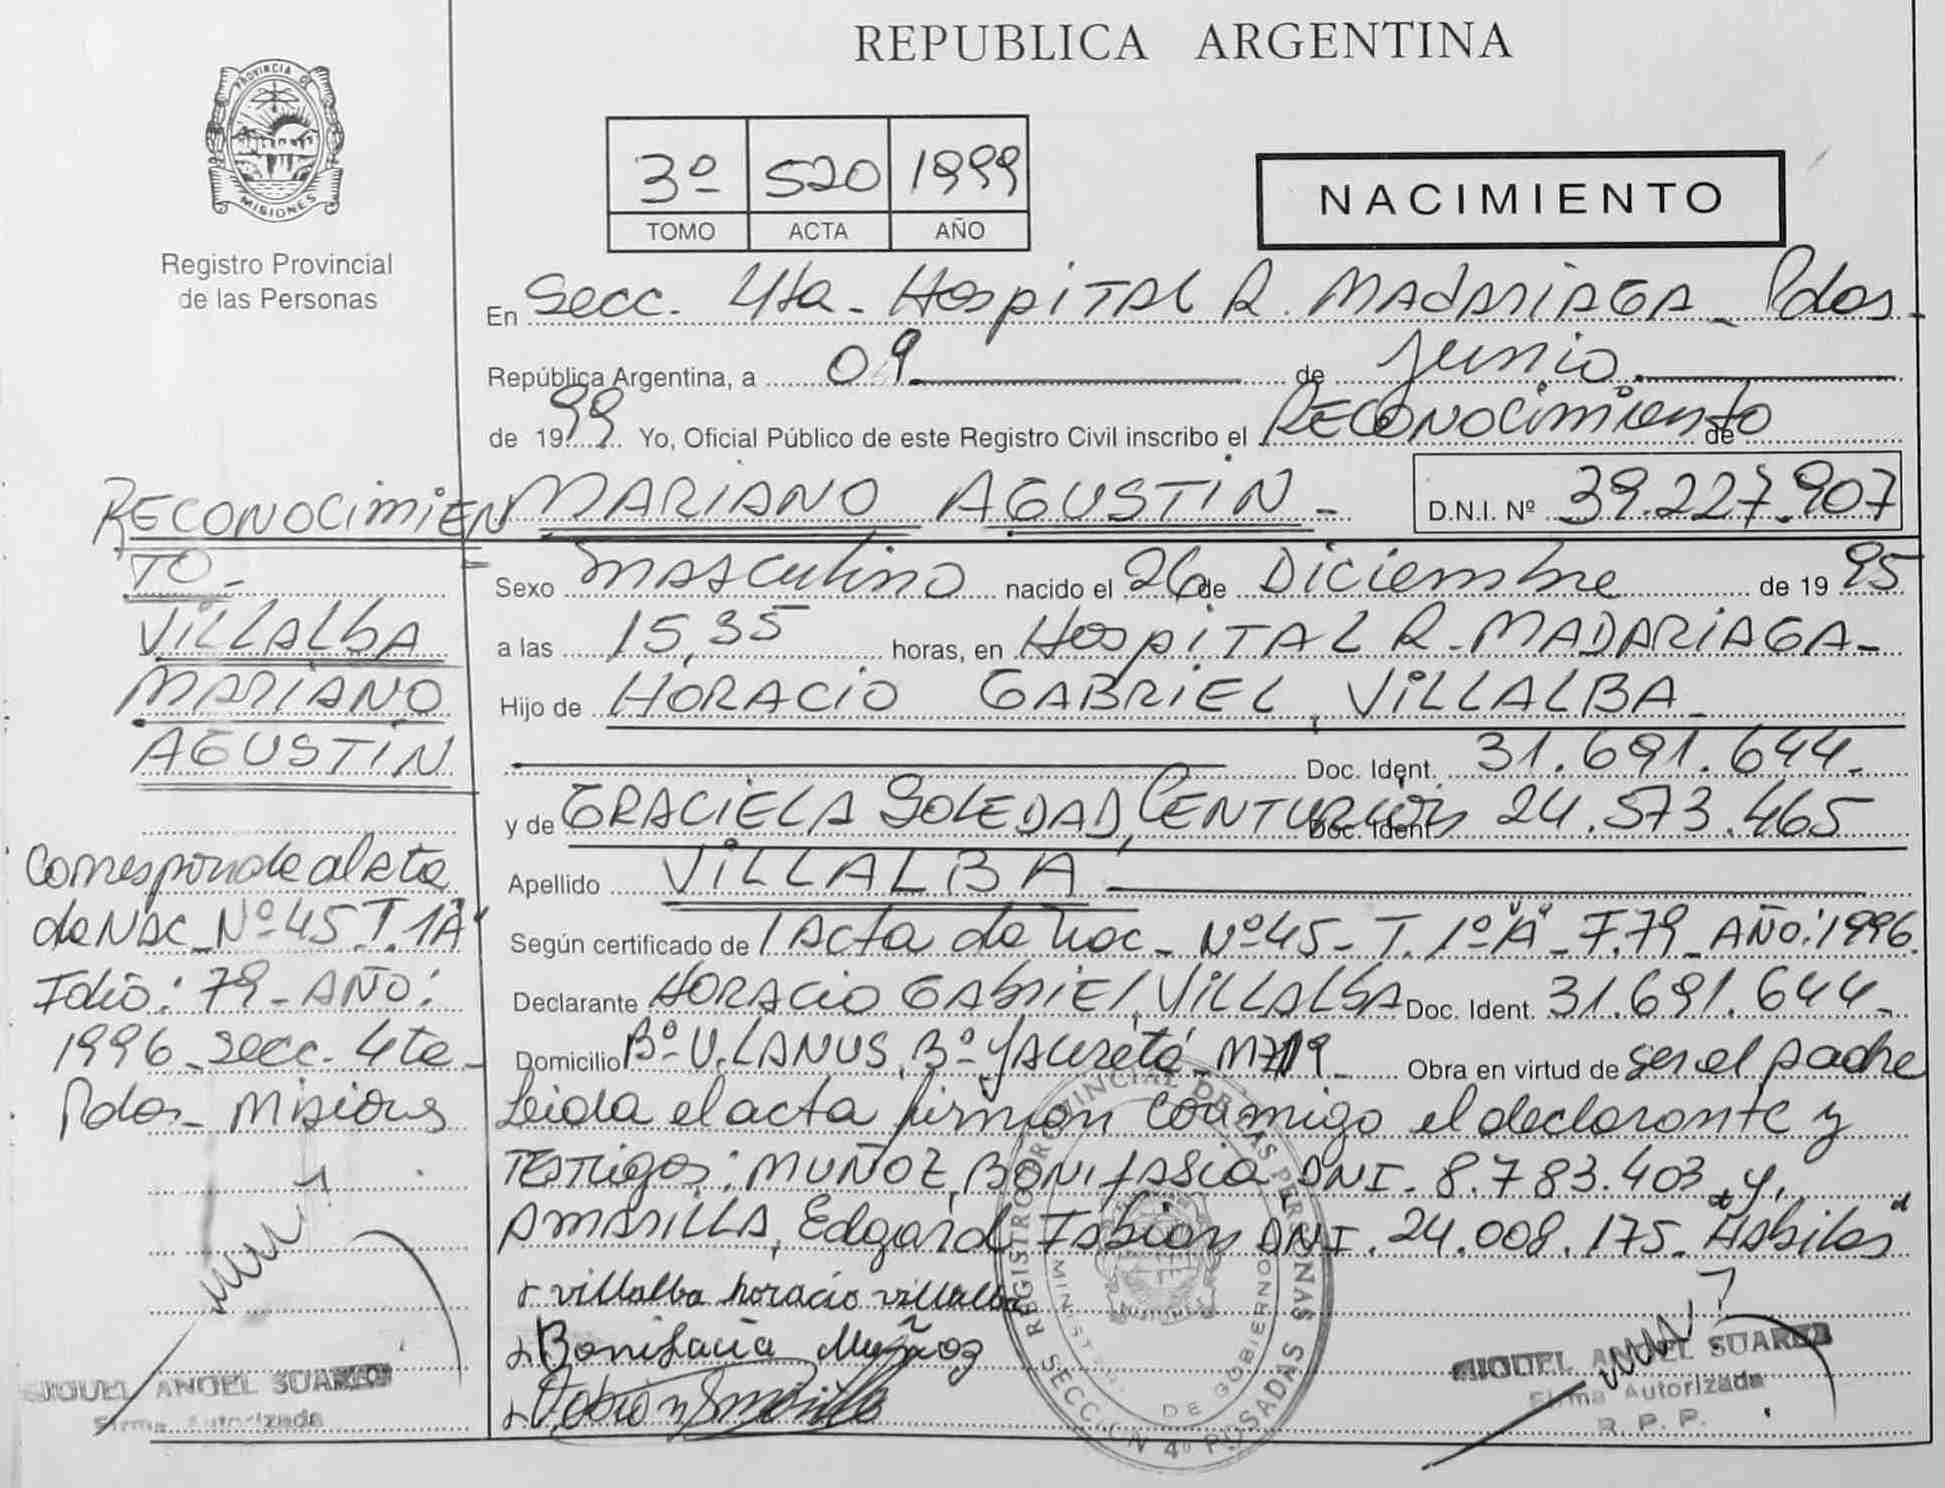 REPUBLICA ARGENTINA
PROVINCIA DE
MISIONES
Registro Provincial
de las Personas
3º 520 1999
TOMO ACTA AÑO
NACIMIENTO
En Secc. 4ta - Hospital R. MADARIAGA - Pdas -
República Argentina, a 09. de Junio.
de 1999 Yo, Oficial Público de este Registro Civil inscribo el RECONOCIMIENTO de
MARIANO AGUSTIN - D.N.I. Nº 39.227.907
Sexo Masculino nacido el 26 de Diciembre de 1995
a las 15,35 horas, en Hospital R. MADARIAGA -
Hijo de HORACIO GABRIEL, VILLALBA -
Doc. Ident. 31.691.644 -
y de GRACIELA SOLEDAD, CENTURION Doc. Ident. 24.573.465
Apellido VILLALBA
Según certificado de Acta de nac - Nº 45 - T. 1º "A" - F. 79 - AÑO: 1996.
Declarante HORACIO GABRIEL, VILLALBA Doc. Ident. 31.691.644 -
Domicilio Bº V. LANUS, Bº Yacireta - Obra en virtud de ser el padre
Leida el acta firman conmigo el declarante y
Testigos: MUÑOZ, BONIFASIA, DNI. 8.783.403 y,
AMARILLA, Edgard Fabian DNI. 24.008.175. "Habiles"
villalba horacio villalba
Bonifacia Muñoz
Fabian Amarilla
RECONOCIMIEN
TO -
VILLALBA
MARIANO
AGUSTIN
Corresponde al Acta
de Nac - Nº 45 T. 1A"
Folio: 79 - AÑO:
1996 - Secc. 4ta -
Pdas - Misiones
MIGUEL ANGEL SUAREZ
Firma Autorizada
MIGUEL ANGEL SUAREZ
Firma Autorizada
R. P. P.
REGISTRO PROVINCIAL DE LAS PERSONAS
SECCION 4º POSADAS
MINISTERIO DE GOBIERNO